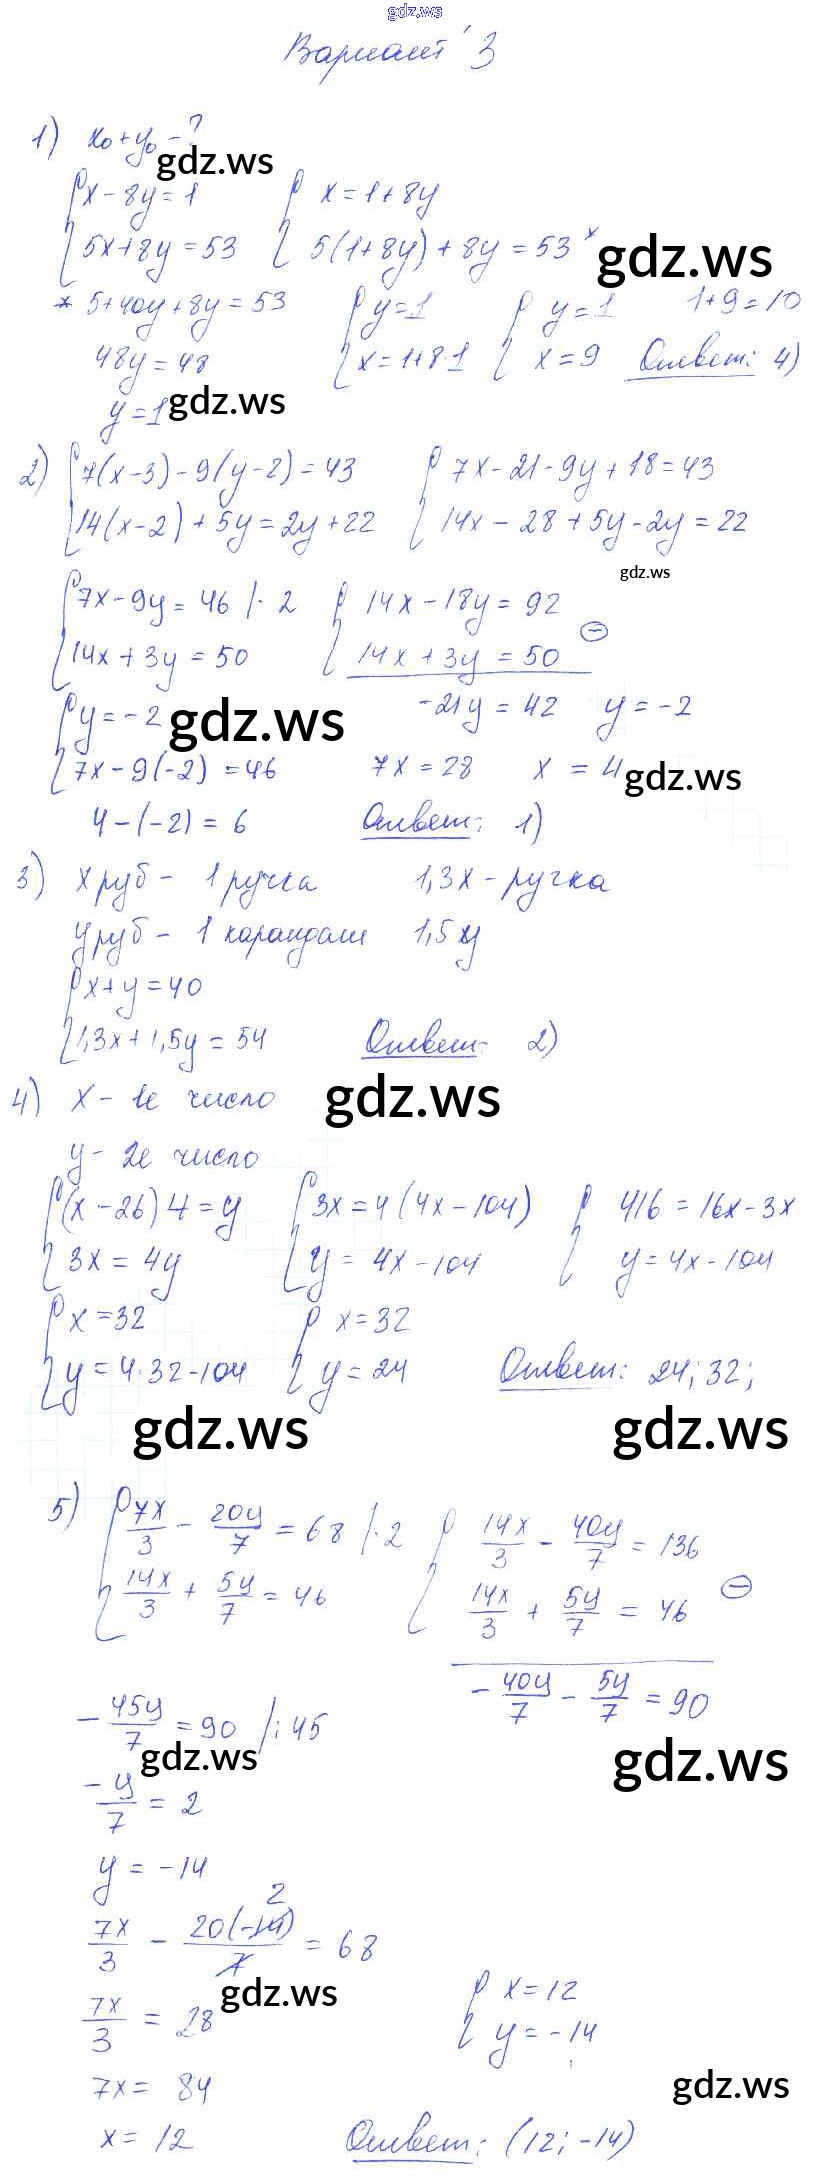 gdz.ws
Вариант 3
1) x₀ + y₀ - ?
gdz.ws
{ x - 8y = 1 { x = 1 + 8y
{ 5x + 8y = 53 { 5(1 + 8y) + 8y = 53 *
gdz.ws
* 5 + 40y + 8y = 53 { y = 1 { y = 1 1 + 9 = 10
48y = 48 { x = 1 + 8·1 { x = 9 Ответ: 4)
y = 1
gdz.ws
2) { 7(x - 3) - 9(y - 2) = 43 { 7x - 21 - 9y + 18 = 43
{ 14(x - 2) + 5y = 2y + 22 { 14x - 28 + 5y - 2y = 22
gdz.ws
{ 7x - 9y = 46 | · 2 { 14x - 18y = 92
{ 14x + 3y = 50 { 14x + 3y = 50 ⊖
{ y = -2 -21y = 42 y = -2
gdz.ws
{ 7x - 9(-2) = 46 7x = 28 x = 4
gdz.ws
4 - (-2) = 6 Ответ: 1)
3) x руб - 1 ручка 1,3x - ручка
y руб - 1 карандаш 1,5 y
{ x + y = 40
{ 1,3x + 1,5y = 54 Ответ: 2)
4) x - 1е число
gdz.ws
y - 2е число
{ (x - 26) 4 = y { 3x = 4(4x - 104) { 416 = 16x - 3x
{ 3x = 4y { y = 4x - 104 { y = 4x - 104
{ x = 32 { x = 32
{ y = 4·32 - 104 { y = 24 Ответ: 24; 32;
gdz.ws gdz.ws
5) { 7x/3 - 20y/7 = 68 | · 2 { 14x/3 - 40y/7 = 136
{ 14x/3 + 5y/7 = 46 { 14x/3 + 5y/7 = 46 ⊖
- 40y/7 - 5y/7 = 90
- 45y/7 = 90 | : 45
gdz.ws gdz.ws
-y/7 = 2
y = -14
2
7x/3 - 20(-14)/7 = 68
gdz.ws
7x/3 = 28 { x = 12
{ y = -14
7x = 84
gdz.ws
x = 12 Ответ: (12; -14)